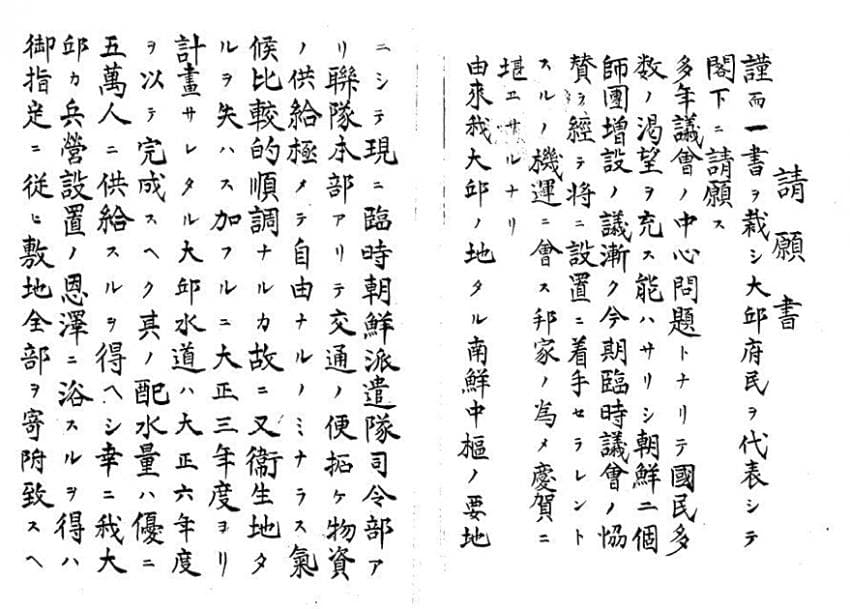 請願書
謹而一書ヲ裁シ大邱府民ヲ代表シテ
閣下ニ請願ス
多年議會ノ中心問題トナリテ國民多
数ノ渇望ヲ充ス能ハサリシ朝鮮二個
師團増設ノ議漸ク今期臨時議會ノ恊
賛ヲ經テ將ニ設置ニ着手セラレント
スルノ機運ニ會ス邦家ノ為メ慶賀ニ
堪エサルナリ
由來我大邱ノ地タル南鮮中樞ノ要地
ニシテ現ニ臨時朝鮮派遣隊司令部ア
リ聯隊本部アリテ交通ノ便拓ケ物資
ノ供給極メテ自由ナルノミナラス氣
候比較的順調ナルカ故ニ又衛生地タ
ルヲ失ハス加フルニ大正三年度ヨリ
計畫サレタル大邱水道ハ大正六年度
ヲ以テ完成スヘク其ノ配水量ハ優ニ
五萬人ニ供給スルヲ得ヘシ幸ニ我大
邱カ兵營設置ノ恩澤ニ浴スルヲ得ハ
御指定ニ従ヒ敷地全部ヲ寄附致スヘ